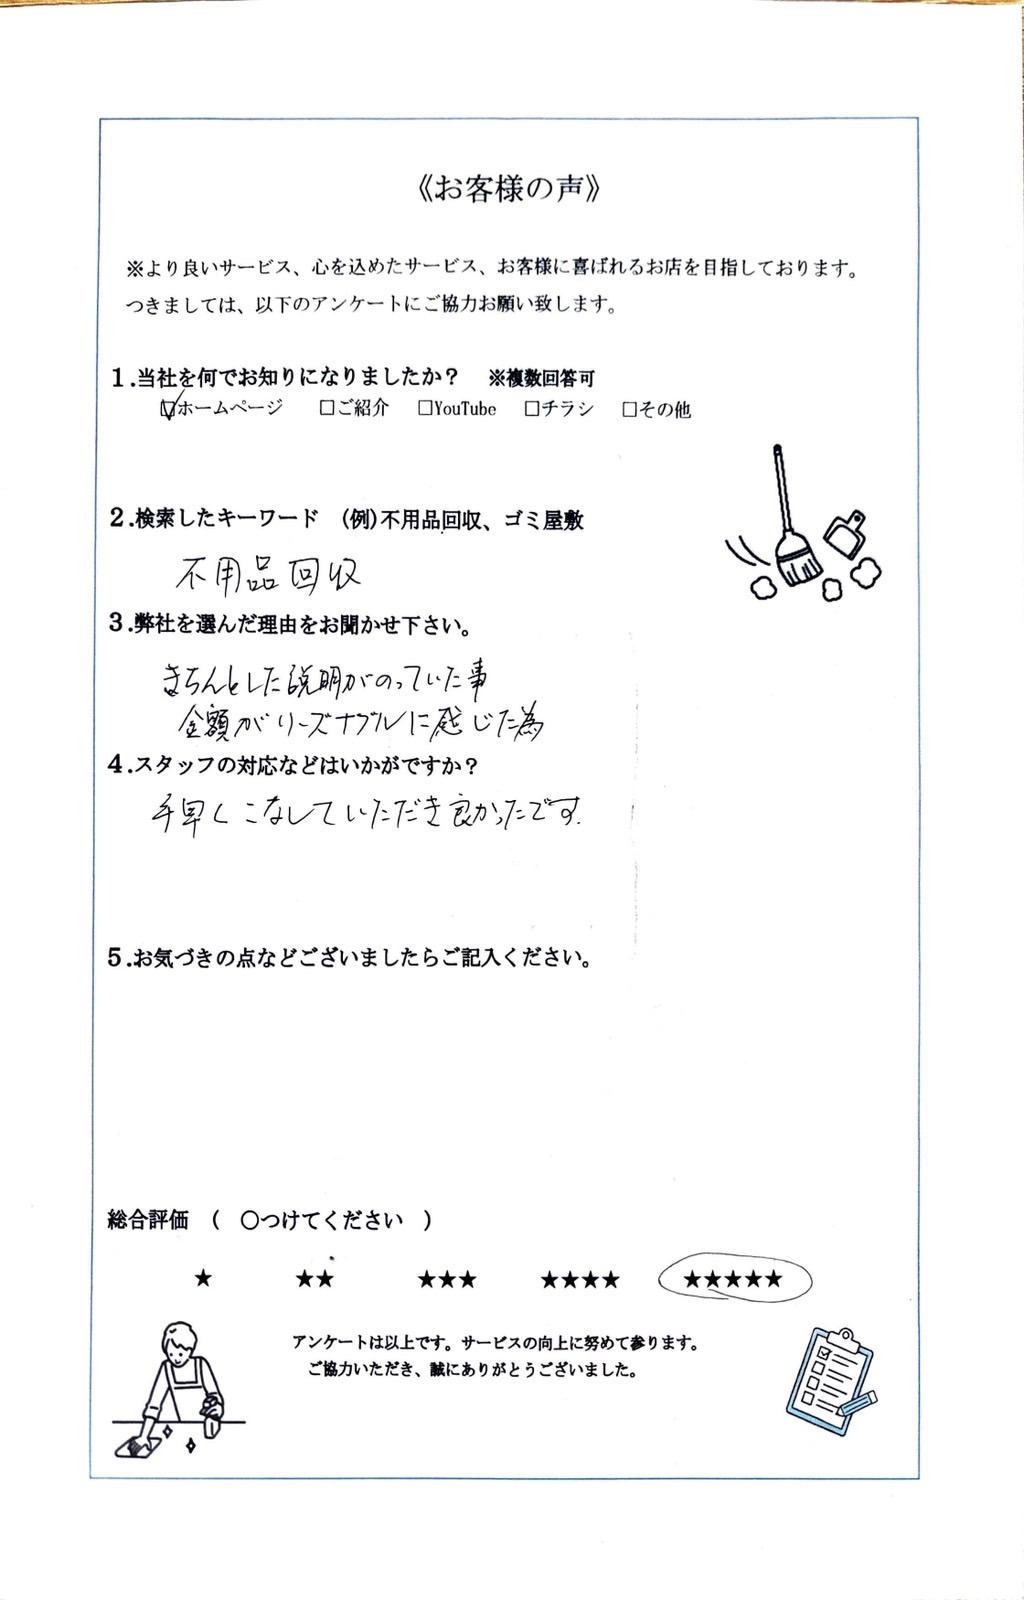 《お客様の声》
※より良いサービス、心を込めたサービス、お客様に喜ばれるお店を目指しております。
つきましては、以下のアンケートにご協力お願い致します。
1.当社を何でお知りになりましたか？ ※複数回答可
☑ホームページ □ご紹介 □YouTube □チラシ □その他
2.検索したキーワード (例)不用品回収、ゴミ屋敷
不用品回収
3.弊社を選んだ理由をお聞かせ下さい。
きちんとした説明がのっていた事
金額がリーズナブルに感じた為
4.スタッフの対応などはいかがですか？
手早くこなしていただき良かったです.
5.お気づきの点などございましたらご記入ください。
総合評価 ( ○つけてください )
★ ★★ ★★★ ★★★★ ★★★★★
アンケートは以上です。サービスの向上に努めて参ります。
ご協力いただき、誠にありがとうございました。